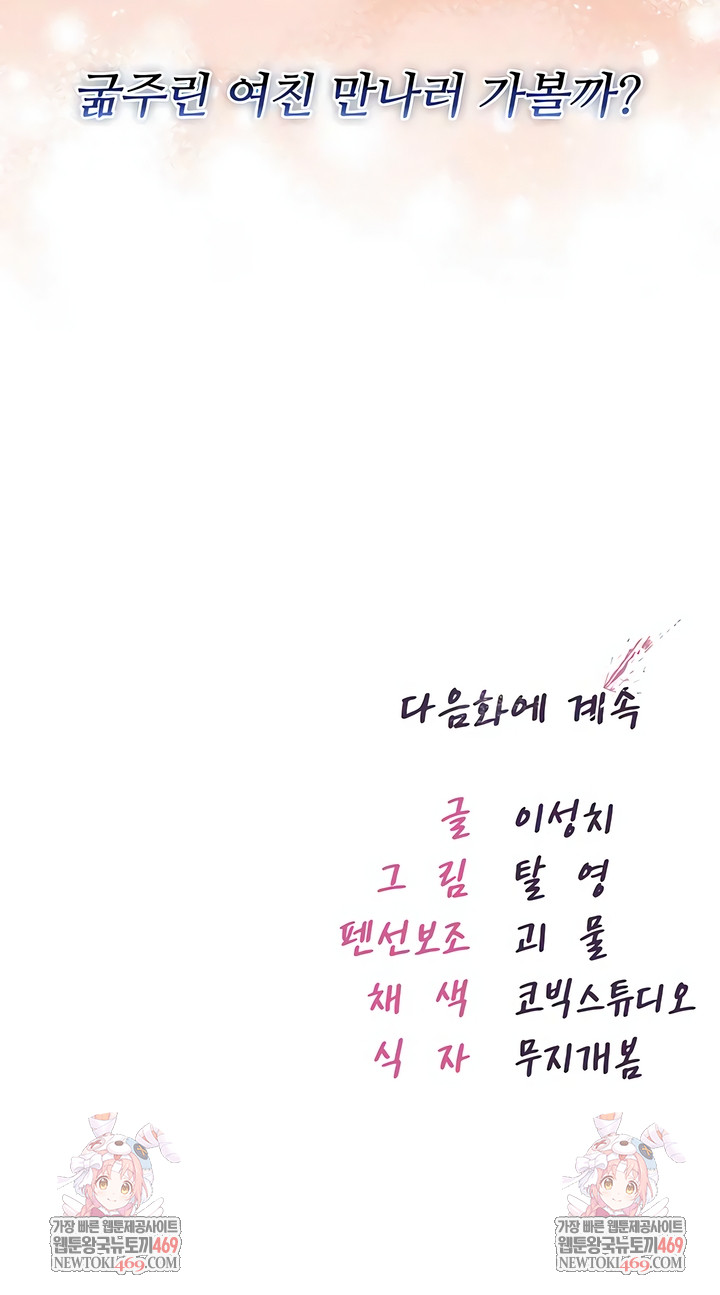 굶주린 여친 만나러 가볼까?
다음화에 계속
글 이성치
그림 탈영
펜선보조 괴물
채색 코빅스튜디오
식자 무지개봄
가장 빠른 웹툰제공사이트
웹툰왕국뉴토끼469
NEWTOKI469.COM
가장 빠른 웹툰제공사이트
웹툰왕국뉴토끼469
NEWTOKI469.COM